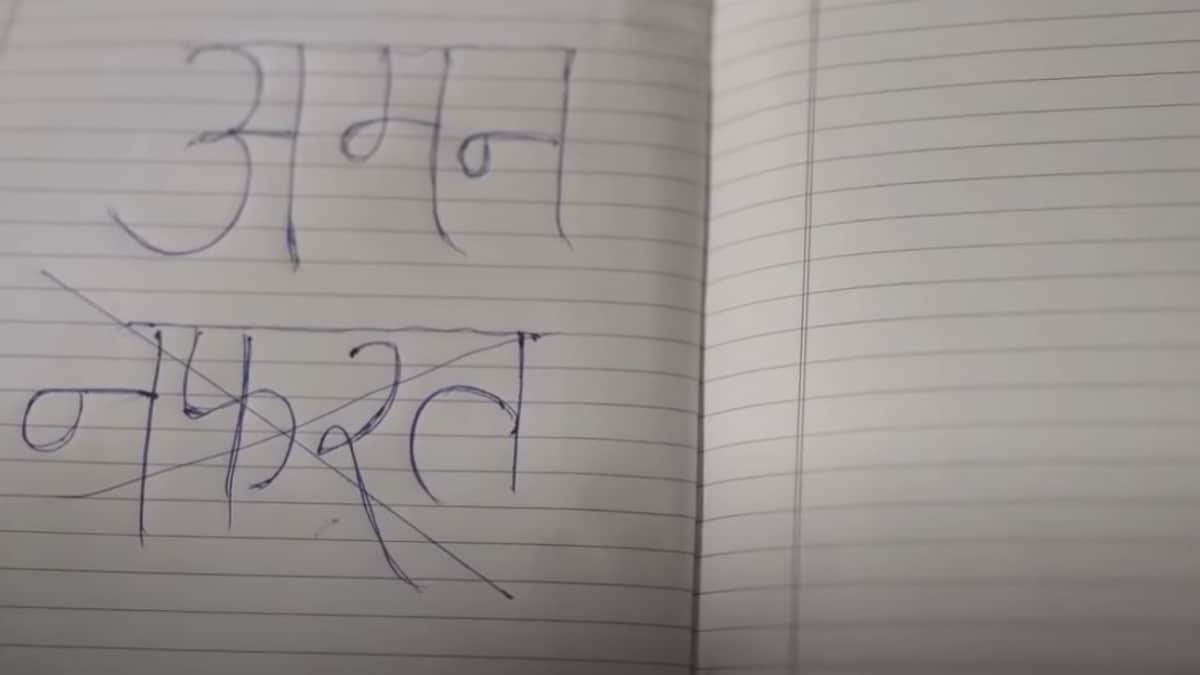 अमन
नफरत